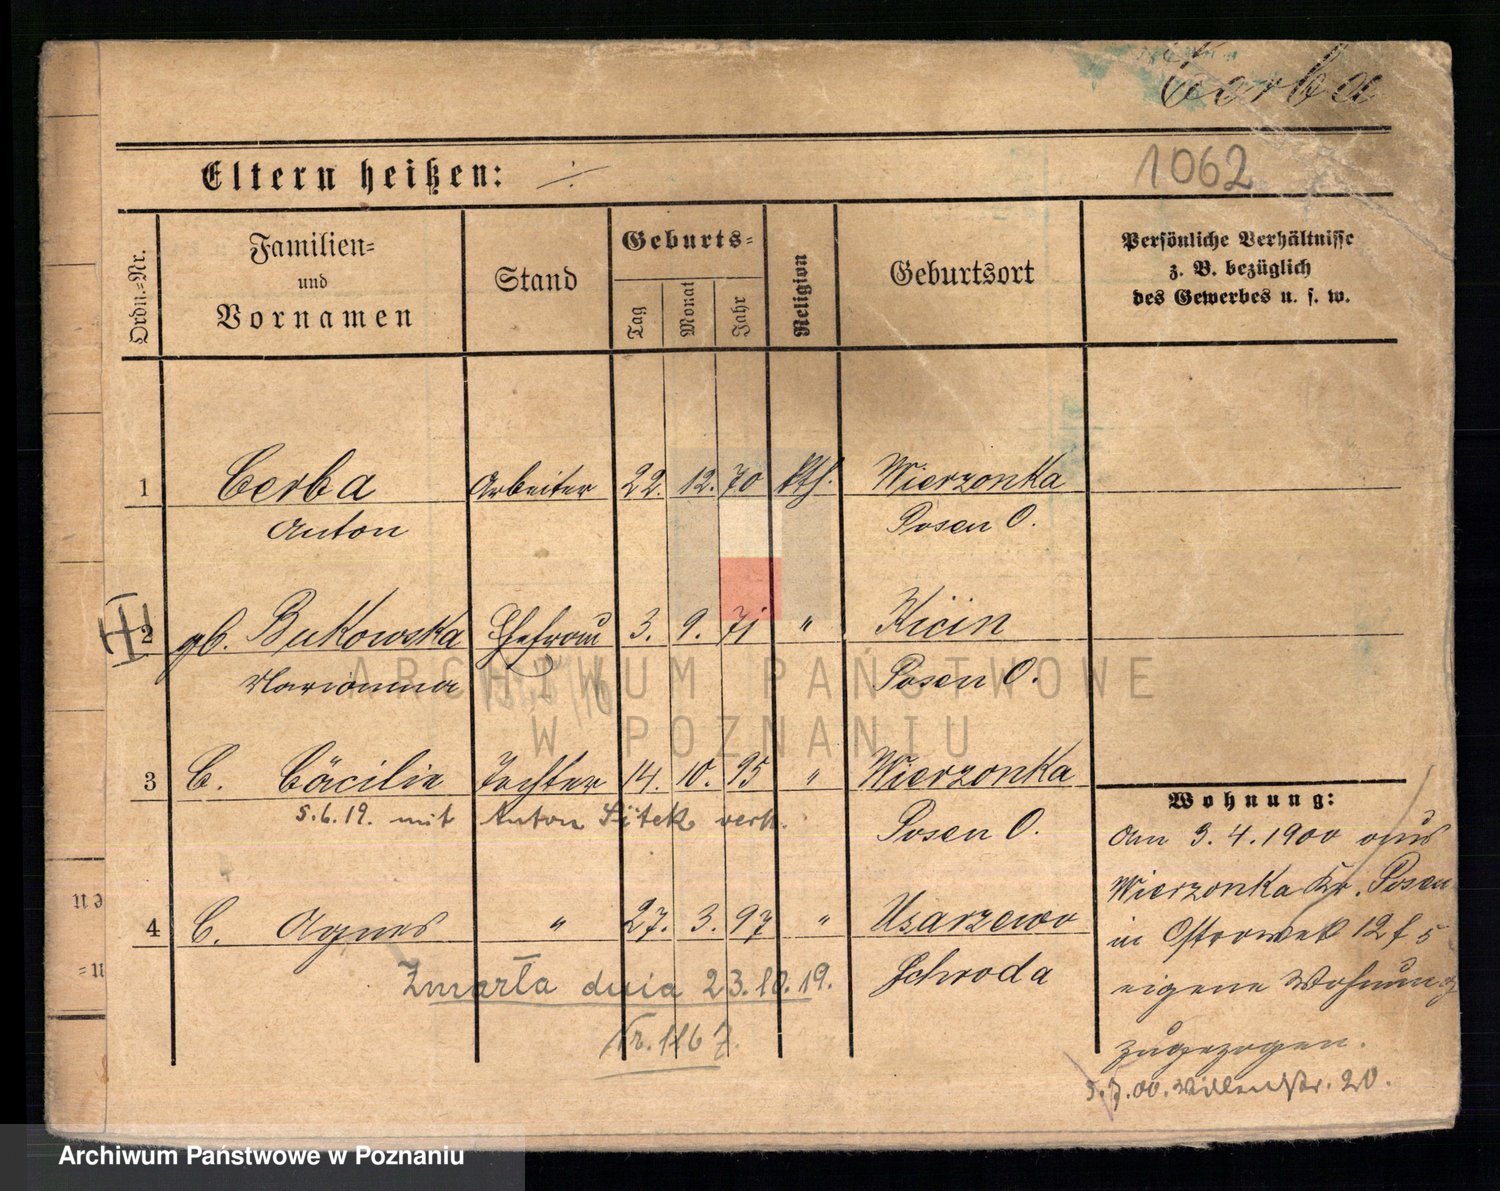 Cerba
Eltern heißen: ÷
1062
Ordn.-Nr.
Familien-
und
Vornamen
Stand
Geburts-
Tag
Monat
Jahr
Religion
Geburtsort
Persönliche Verhältnisse
z. B. bezüglich
des Gewerbes u. s. w.
1 Cerba Arbeiter 22. 12. 70 kth. Wierzonka
Anton Posen O.
2 gb. Bukowska Ehefrau 3. 9. 71 " Kicin
Marianna Posen O.
ARCHIWUM PAŃSTWOWE
W POZNANIU
3 C. Cäcilie Tochter 14. 10. 95 " Wierzonka
5.6.19. mit Anton Sitek verh. Posen O.
4 C. Agnes " 27. 3. 97 " Usarzewo
Schroda
Zmarła dnia 23.10.19.
Nr. 1167.
Wohnung:
Am 3.4.1900 aus
Wierzonka Kr. Posen
in Ostrowek 12 f 5
eigene Wohnung
zugezogen.
5.7.00. Wallenstr. 20.
en
n=
Archiwum Państwowe w Poznaniu